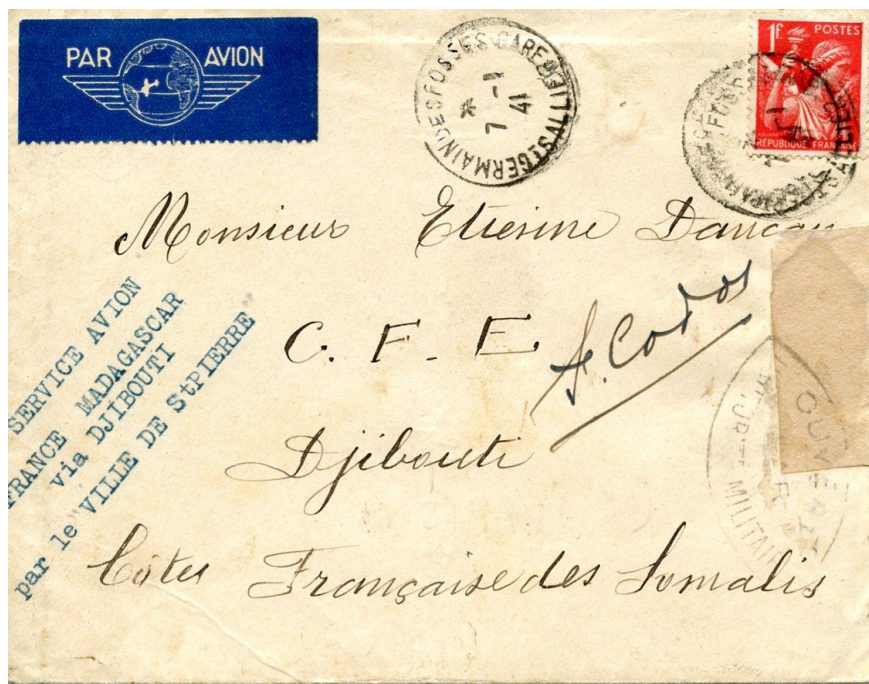 PAR AVION
ST GERMAIN DES FOSSES GARE ALLIER
* 7 -1 41
1F. POSTES
RÉPUBLIQUE FRANÇAISE
Monsieur Etienne
C. F. E
A. Codos
Djibouti
Côtes Française des Somalis
SERVICE AVION
FRANCE MADAGASCAR
via DJIBOUTI
par le "VILLE DE StPIERRE"
OUVERT
MILITAIRE